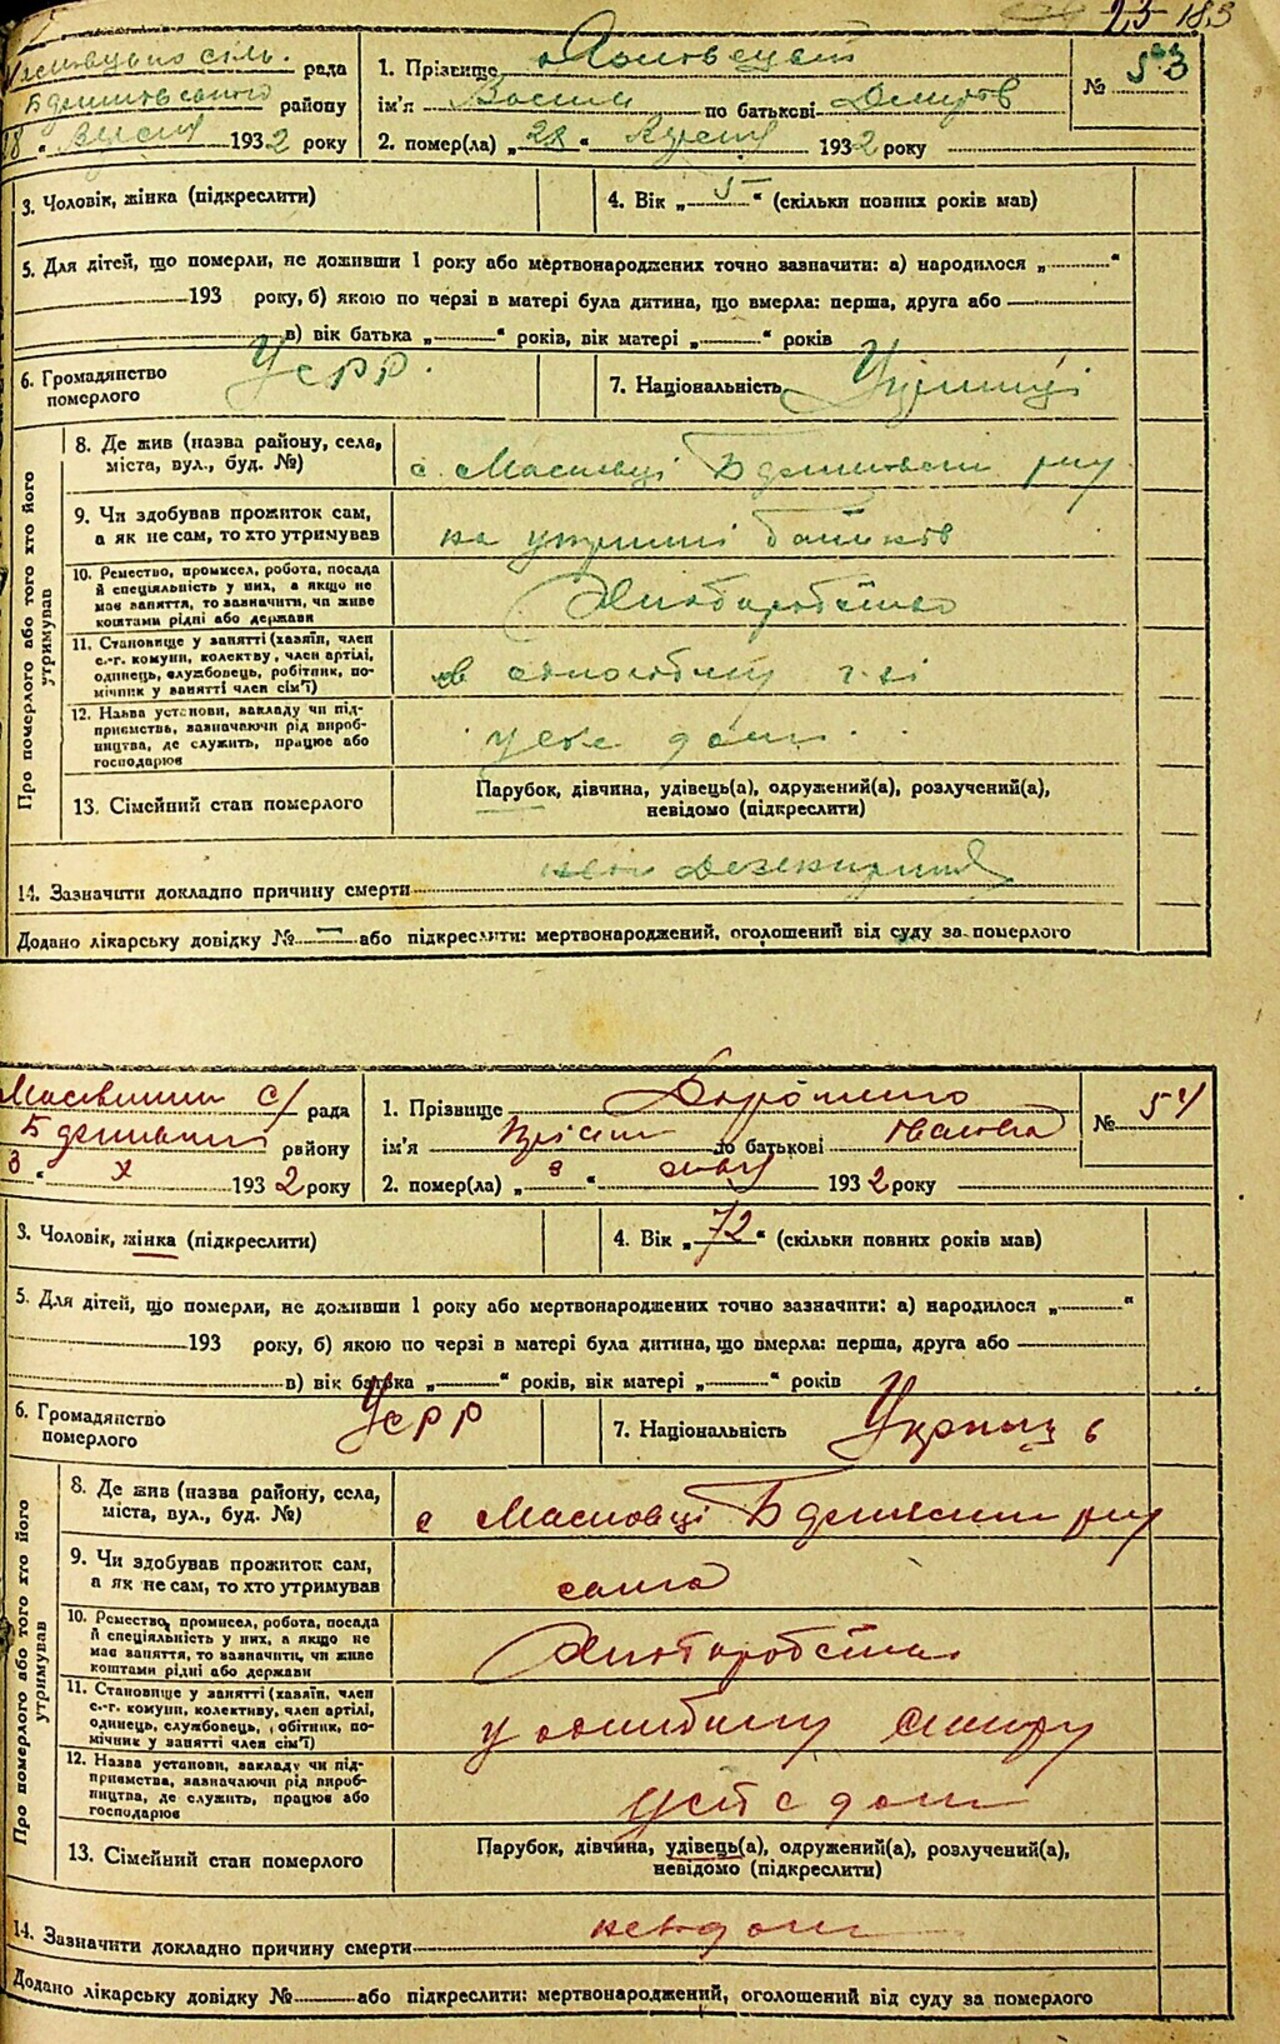 183
рада
району
193 2 року
1. Прізвище
ім'я Василь по батькові
2. помер(ла) „ 28 “ 193 2 року
№ 53
3. Чоловік, жінка (підкреслити)
4. Вік „ 5 “ (скільки повних років мав)
5. Для дітей, що померли, не доживши 1 року або мертвонароджених точно зазначити: а) народилося „ “
193 року, б) якою по черзі в матері була дитина, що вмерла: перша, друга або
в) вік батька „ “ років, вік матері „ “ років
6. Громадянство
померлого
Усрр.
7. Національність
Про померлого або того хто його
утримував
8. Де жив (назва району, села,
міста, вул., буд. №)
с. Масківці
9. Чи здобував прожиток сам,
а як не сам, то хто утримував
на утриманні батьків
10. Ремество, промисел, робота, посада
й спеціяльність у них, а якщо не
має заняття, то зазначити, чи живе
коштами рідні або держави
Хліборобство
11. Становище у занятті (хазяїн, член
с.-г. комуни, колективу, член артілі,
одинець, службовець, робітник, по-
мічник у занятті член сім'ї)
12. Назва установи, закладу чи під-
приємства, зазначаючи рід вироб-
ництва, де служить, працює або
господарює
у себе дома.
13. Сімейний стан померлого
Парубок, дівчина, удівець(а), одружений(а), розлучений(а),
невідомо (підкреслити)
14. Зазначити докладно причину смерти
Додано лікарську довідку № — або підкреслити: мертвонароджений, оголошений від суду за померлого
рада
району
3 “ X 193 2 року
1. Прізвище
ім'я по батькові Іванова
2. помер(ла) „ 3 “ 193 2 року
№ 54
3. Чоловік, жінка (підкреслити)
4. Вік „ 72 “ (скільки повних років мав)
5. Для дітей, що померли, не доживши 1 року або мертвонароджених точно зазначити: а) народилося „ “
193 року, б) якою по черзі в матері була дитина, що вмерла: перша, друга або
в) вік батька „ “ років, вік матері „ “ років
6. Громадянство
померлого
Усрр
7. Національність
Про померлого або того хто його
утримував
8. Де жив (назва району, села,
міста, вул., буд. №)
с Масківці
9. Чи здобував прожиток сам,
а як не сам, то хто утримував
сама
10. Ремество, промисел, робота, посада
й спеціяльність у них, а якщо не
має заняття, то зазначити, чи живе
коштами рідні або держави
Хліборобство
11. Становище у занятті (хазяїн, член
с.-г. комуни, колективу, член артілі,
одинець, службовець, робітник, по-
мічник у занятті член сім'ї)
12. Назва установи, закладу чи під-
приємства, зазначаючи рід вироб-
ництва, де служить, працює або
господарює
13. Сімейний стан померлого
Парубок, дівчина, удівець(а), одружений(а), розлучений(а),
невідомо (підкреслити)
14. Зазначити докладно причину смерти
Додано лікарську довідку № або підкреслити: мертвонароджений, оголошений від суду за померлого